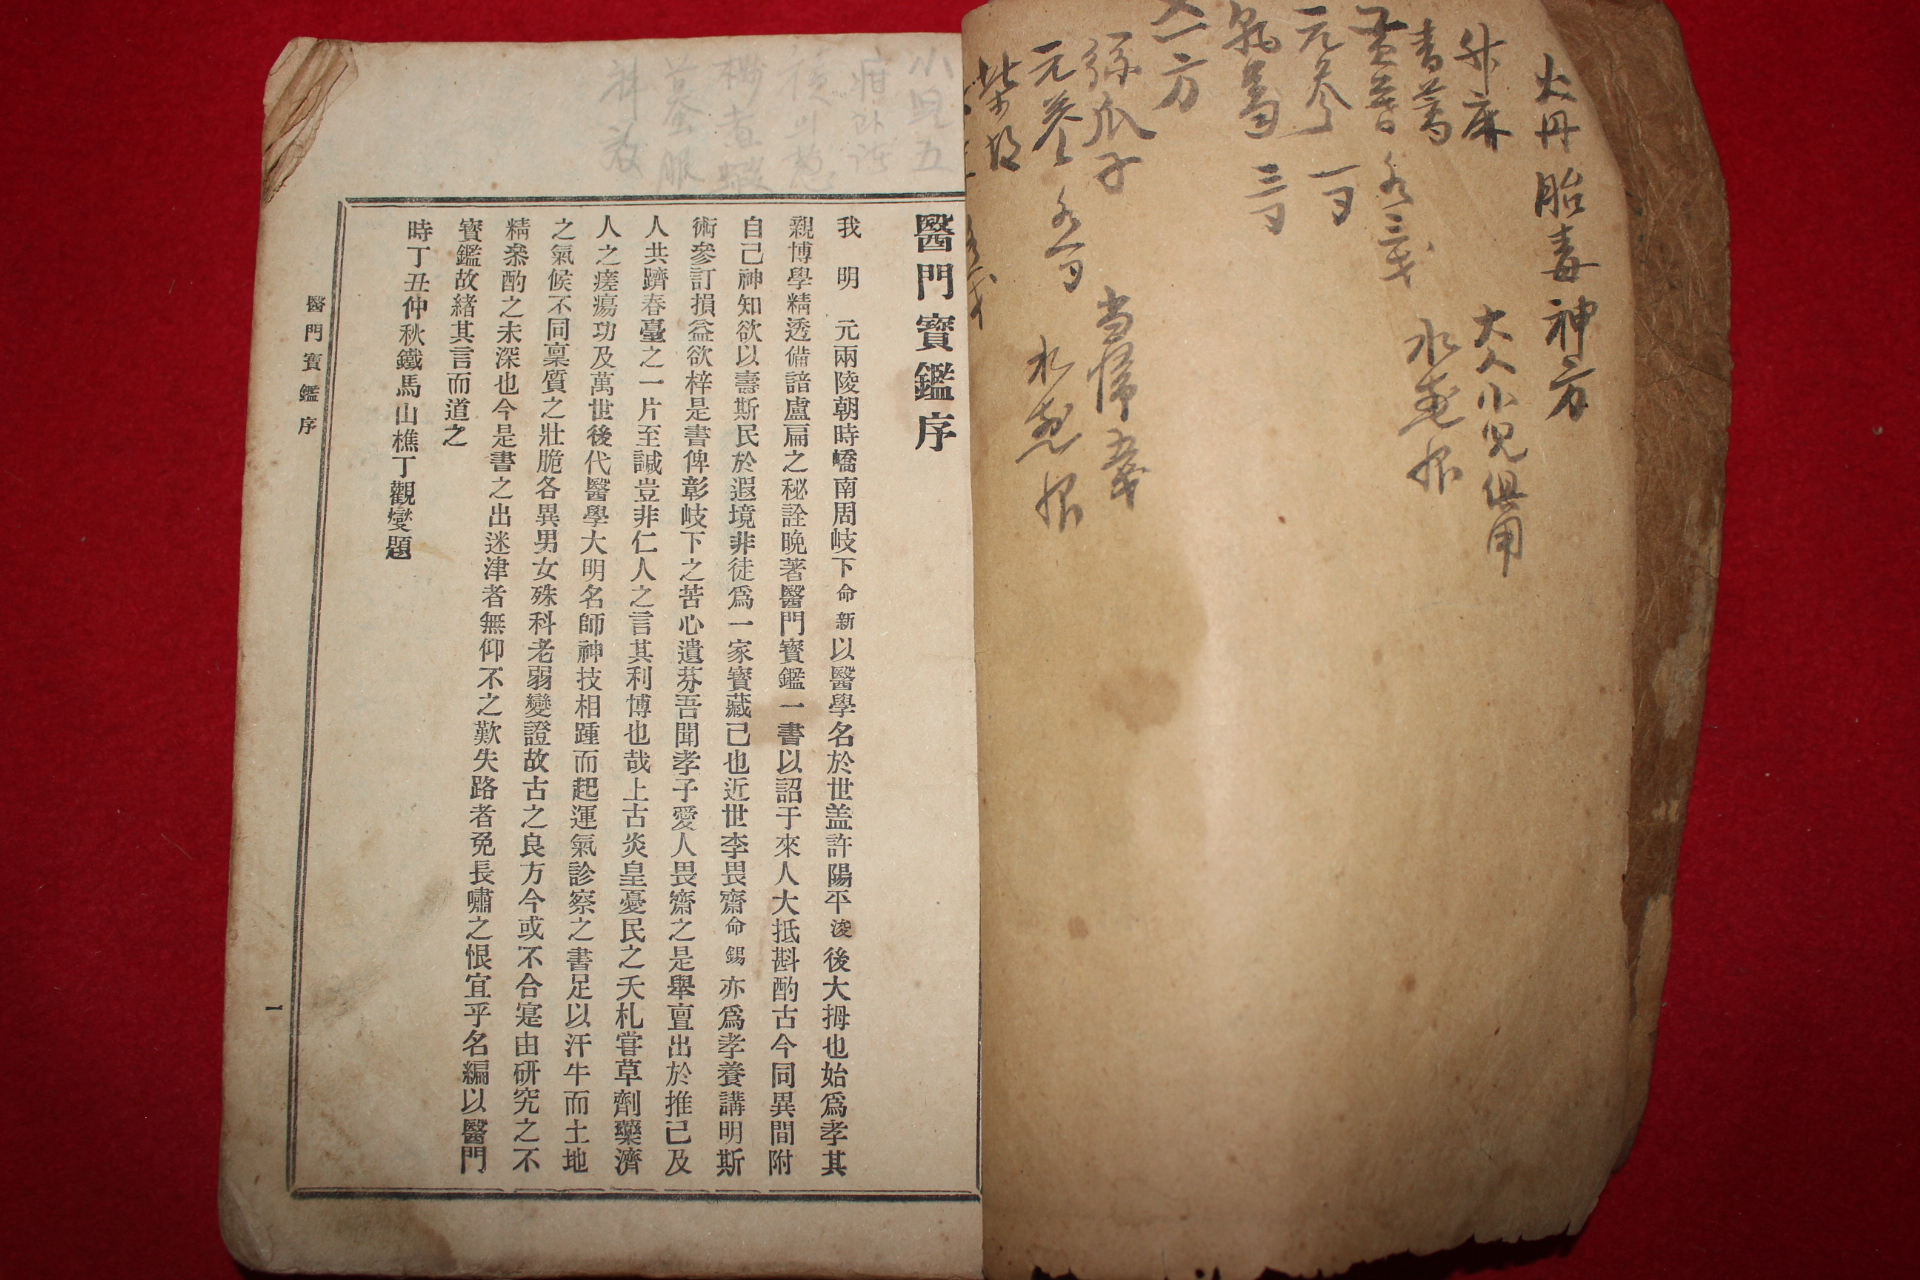 火丹胎毒神方
大人小児俱用
升麻
青蒿
水煎服
黄芩各三戔
元参
一方
元參
柴胡
当帰五戔
水煎服
醫門寶鑑序
我明元兩陵朝時嶠南周岐下命新以醫學名於世盖許陽平浚後大拇也始爲孝其
親博學精透備諳盧扁之秘詮晩著醫門寶鑑一書以詔于來人大抵斟酌古今同異間附
自己神知欲以壽斯民於遐境非徒爲一家寶藏己也近世李畏齋命錫亦爲孝養講明斯
術參訂損益欲梓是書俾彰岐下之苦心遺芬吾聞孝子愛人畏齋之是舉亶出於推己及
人共躋春臺之一片至諴豈非仁人之言其利博也哉上古炎皇憂民之夭札嘗草劑藥濟
人之瘥瘍功及萬世後代醫學大明名師神技相踵而起運氣診察之書足以汗牛而土地
之氣候不同稟質之壯脆各異男女殊科老弱變證故古之良方今或不合寔由研究之不
精叅酌之未深也今是書之出迷津者無仰不之歎失路者免長嘯之恨宜乎名編以醫門
寶鑑故緖其言而道之
時丁丑仲秋鐵馬山樵丁觀燮題
醫門寶鑑序
一